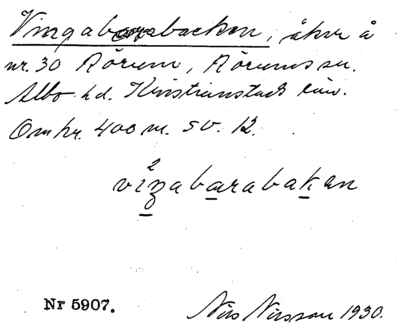 Vingabarabacken, åker å
nr. 30 Rörum, Rörums sn.
Albo hd. Kristianstads län.
Omkr. 400 m. SV. 12.
2
viŋabarabakan
Nr 5907.
Nils Nilsson 1930.